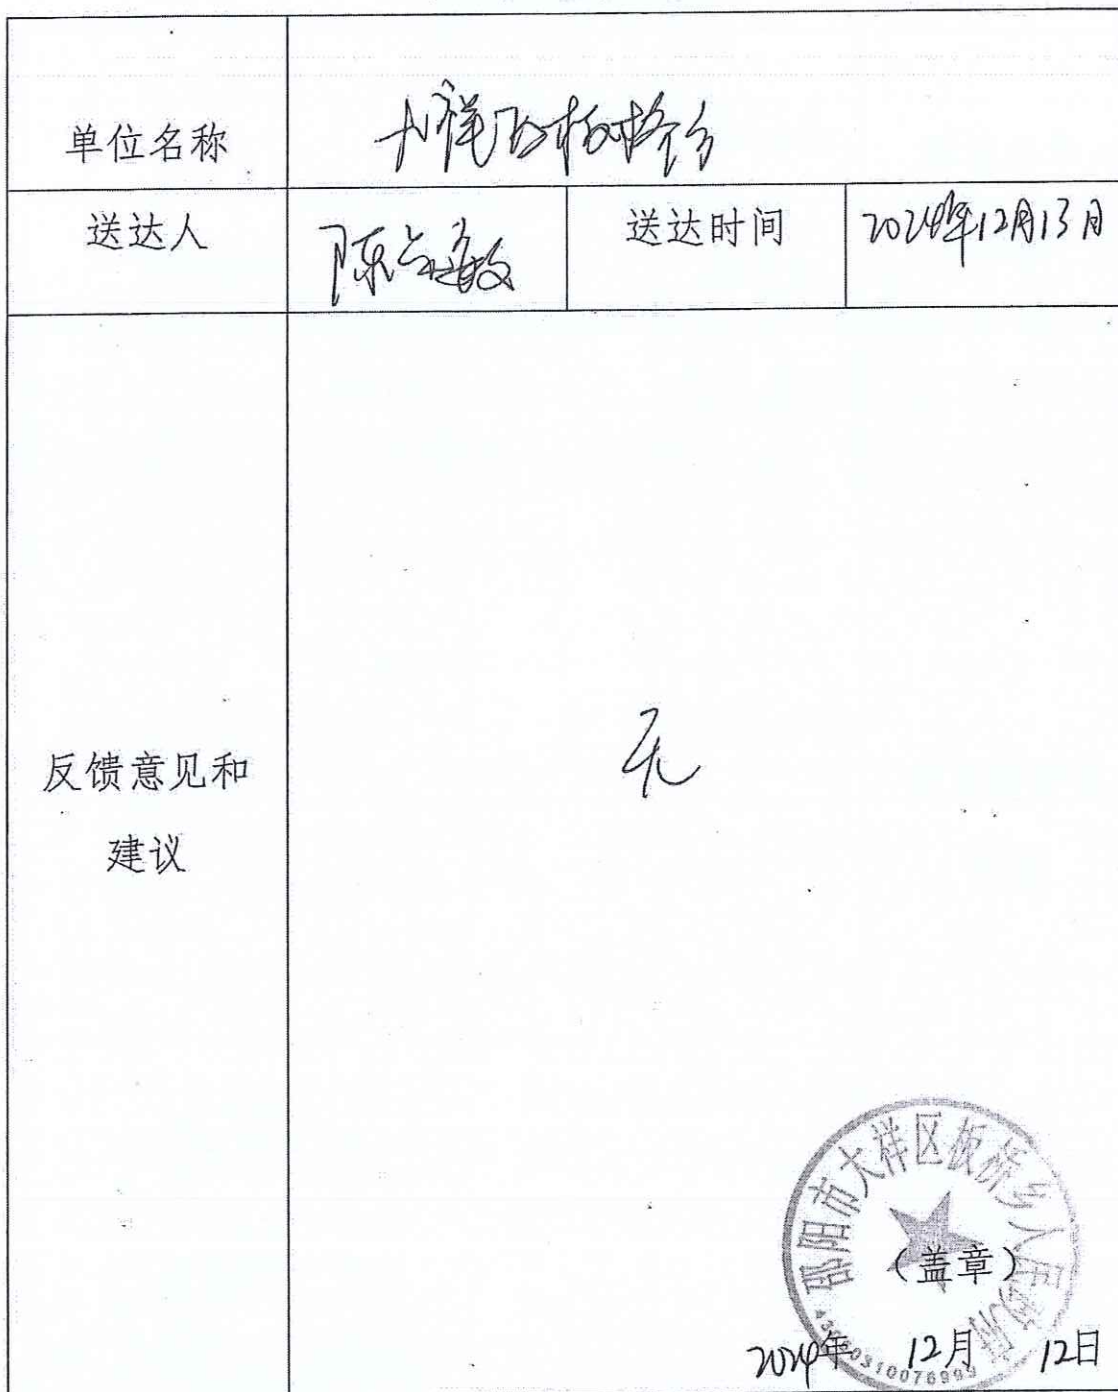 单位名称
大祥区板桥乡
送达人
陈
送达时间
2024年12月13日
反馈意见和
建议
无
邵阳市大祥区板桥乡人民政府
（盖章）
2024年 12月 12日